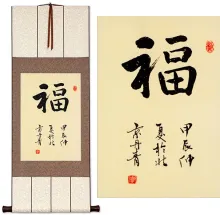 福
甲辰仲
夏於北
京丹青
福
甲辰仲
夏於北
京丹青